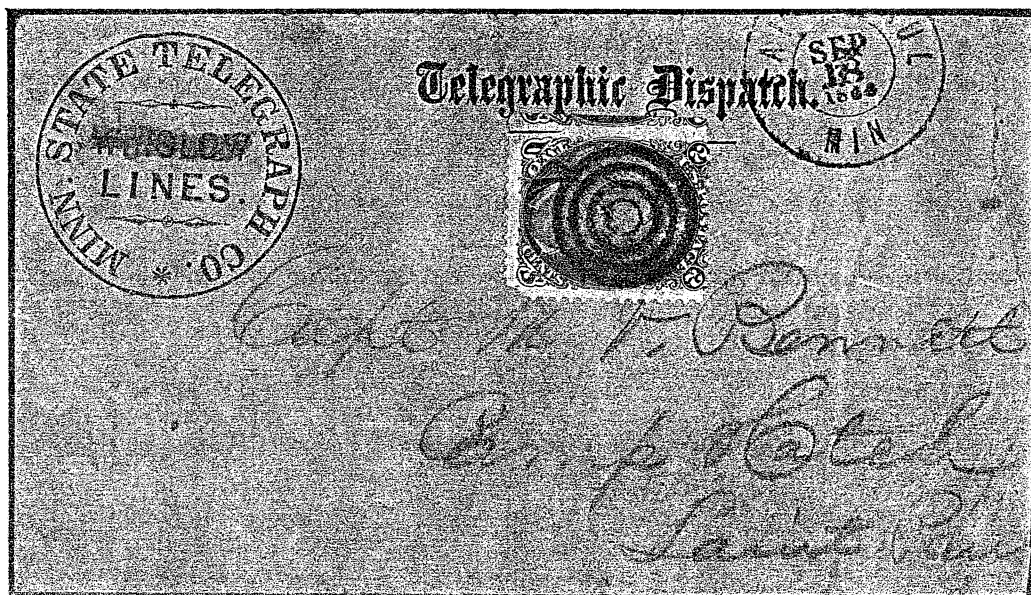 MINN. STATE TELEGRAPH CO. *
WINSLOW
LINES.
Telegraphic Dispatch.
SEP
1868
MIN
Capt M V. Bennett
Hotel
Saint Paul